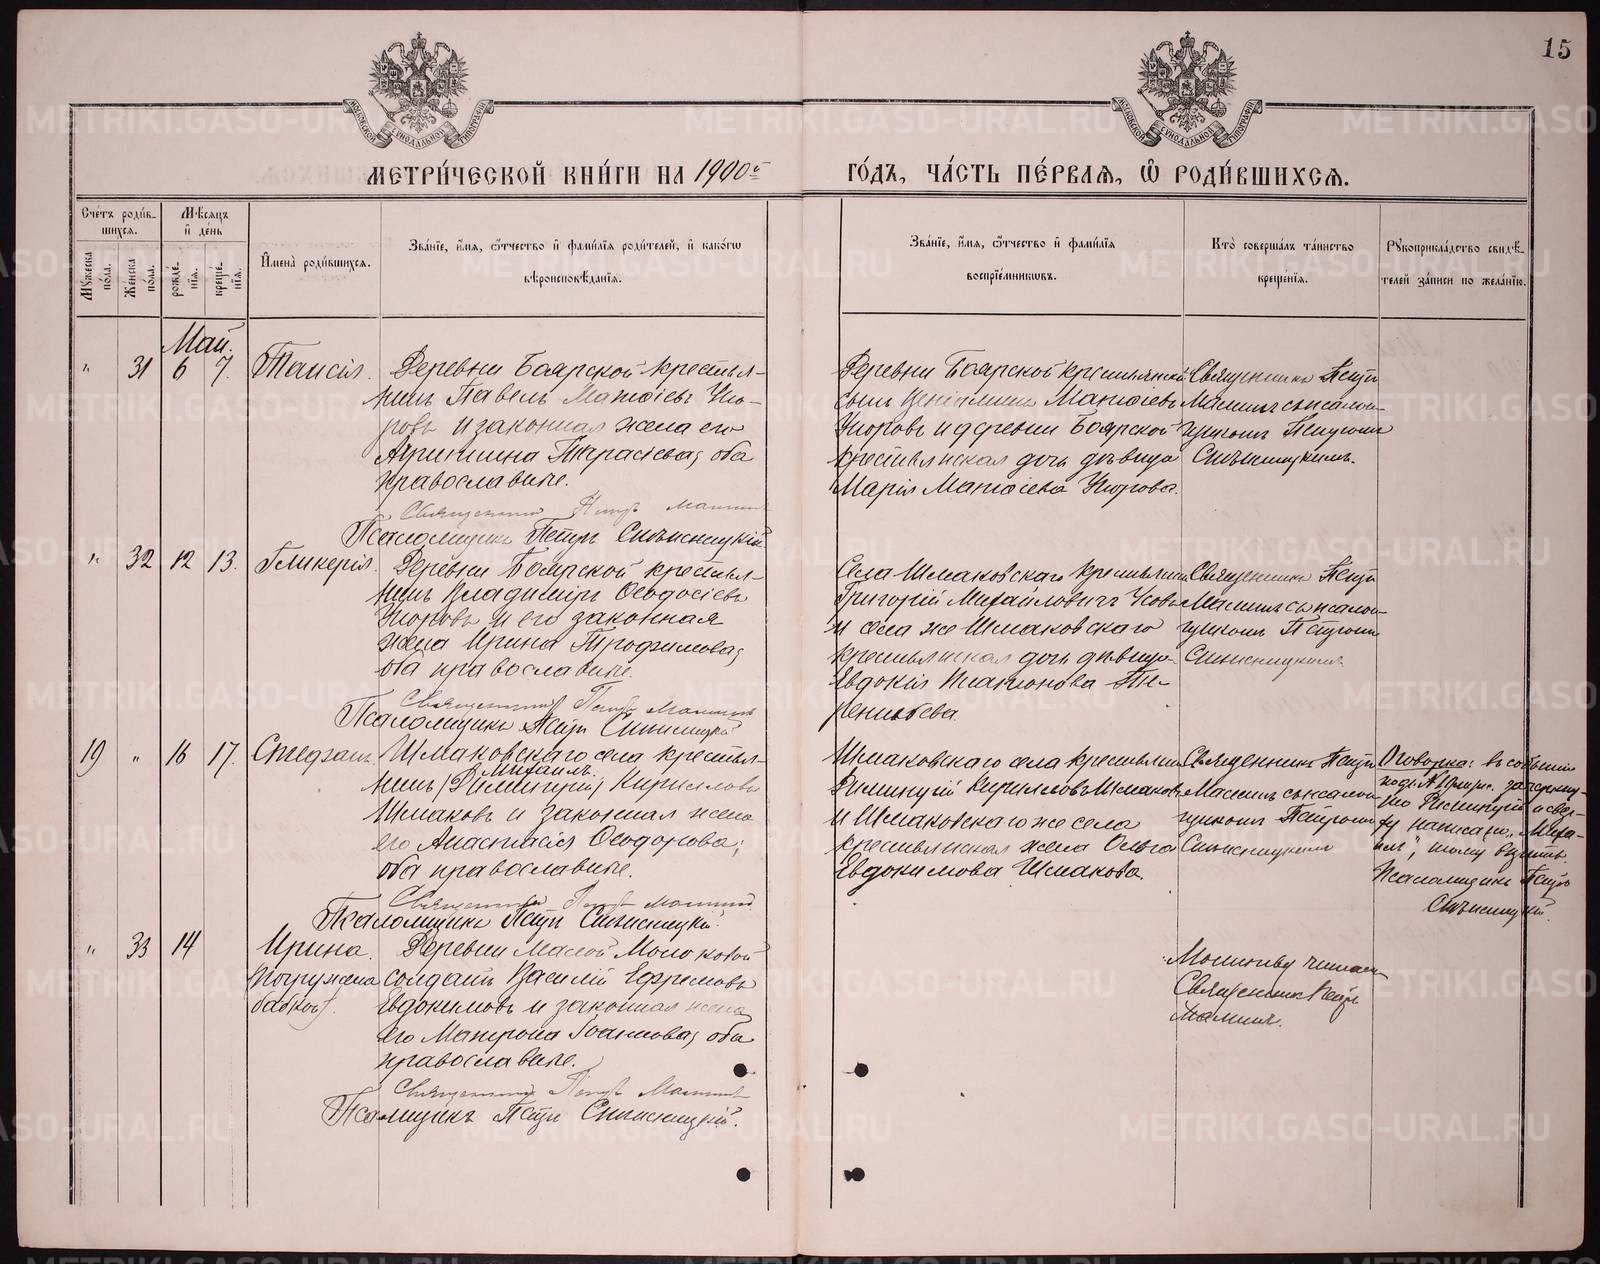 15
МЕТРИ́ЧЕСКОЙ КНИ́ГИ НА 1900й ГО́ДЪ, ЧА́СТЬ ПЕ́РВАѦ, Ѽ РОДИ́ВШИХСѦ.
Сче́тъ роди́в-
шихсѧ.
Мꙋ́жеска по́ла.
Же́нска по́ла.
Мѣ́сѧцъ и҆ де́нь
рожде́нїѧ.
креще́нїѧ.
И҆мена̀ роди́вшихсѧ.
Зва́нїе, и҆́мѧ, ѻ҆́тчество и҆ фами́лїѧ роди́телей, и҆ како́гѡ
вѣроисповѣ́данїѧ.
Зва́нїе, и҆́мѧ, ѻ҆́тчество и҆ фами́лїѧ
воспрїе́мникѡвъ.
Кто̀ соверша́лъ та́инство
креще́нїѧ.
Рꙋкоприкла́дство свидѣ́-
телей за́писи по жела́нїю.
Май.
" 31 6 7. Таисія.
Деревни Боярской крестья-
нинъ Павелъ Матѳіевъ
и законная жена его
Агрипина Тарасіева, оба
православные.
Священникъ Петръ Мамин
Псаломщикъ Петръ
Деревни Боярской крестьянскій
сынъ Веніаминъ Матѳіевъ
и деревни Боярской
крестьянская дочь дѣвица
Марія Матѳіева
Священникъ Петръ
Маминъ съ псалом-
щикомъ Петромъ
" 32 12 13. Гликерія.
Деревни Боярской крестья-
нинъ Владиміръ Ѳеодосіевъ
и его законная
жена Ирина Трофимова,
оба православные.
Священникъ Петръ Маминъ
Псаломщикъ Петръ
Села Шмаковскаго крестьянинъ
Григорій Михайловичъ
и села же Шмаковскаго
крестьянская дочь дѣвица
Евдокія Платонова Те-
рентьева.
Священникъ Петръ
Маминъ съ псалом-
щикомъ Петромъ
19 " 16 17. Стефанъ.
Шмаковскаго села крестья-
Михаилъ.
нинъ (Филиций) Кирилловъ
Шмаковъ и законная жена
его Анастасія Ѳеодорова;
оба православные.
Священникъ Петръ Мамин
Псаломщикъ Петръ
Шмаковскаго села крестьянинъ
Кирилловъ Шмаковъ
и Шмаковскаго же села
крестьянская жена Ольга
Евдокимова Шмакова.
Священникъ Петръ
Маминъ съ псалом-
щикомъ Петромъ
Оговорка: въ
подъ № 19
а свер-
ху написано „Миха-
илъ",
Псаломщикъ Петръ
" 33 14 Ирина.
Погружена
бабкой.
Деревни Малой
солдатъ Василій Ефремовъ
Евдокимовъ и законная жена
его Матрона Іоаннова, оба
православные.
Священникъ Петръ Мамин
Псаломщикъ Петръ
Молитву читалъ
Священникъ Петръ
Маминъ.
METRIKI.GASO-URAL.RU